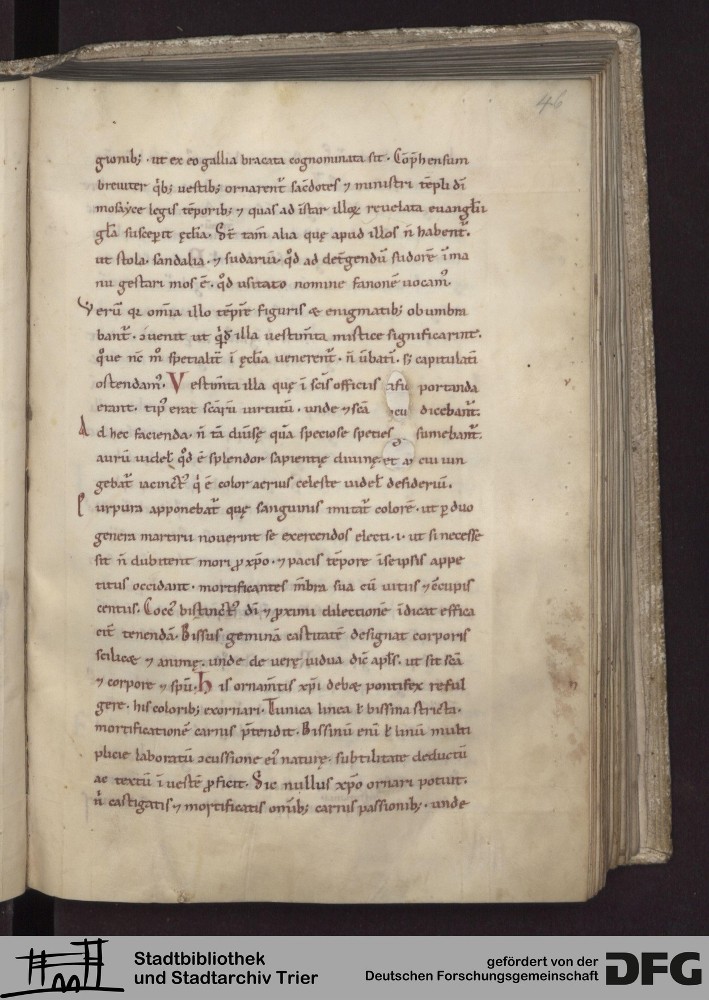 46
gionib; · ut ex eo gallia bracata cognominata sit · Cōp̄hensum
breuiter q̇b; uestib; ornarent᷑ sac̄dotes ⁊ ministri tēpli dī
mosayce legis tēporib; ⁊ quas ad īstar illoꝝ reuelata euangłii
gła suscepit ęcłia. St̄ tam̄ alia quę apud illos n̄ habent᷑.
ut stola. sandalia. ⁊ sudariū. qđ ad det̄gendū sudorē ī ma
nu gestari mos ē. qđ usitato nomine fanonē uocam᷒.
Verū q̇ om̄ia illo tēpr̄e figuris & enigmatib; obumbra
bant᷑. ɔuenit ut q̇d illa uestim̄ta mistice significarint.
q̇ue nc̄ m̊ sp̄etialit̄ ī ęcłia uenerent᷑. n̄ ūbatī. s; capitulatī
ostendam᷒. Vestim̄ta illa quę ī sc̄is officiis portanda
erant. tip᷒ erat sc̄aꝝ uirtutū. unde ⁊ sc̄a dicebant᷑.
Ad hec facienda. n̄ tā diūsę quā speciose species sumebant᷑.
aurū uidel; qđ ē splendor sapientię diuinę. et cui iun
gebat᷑ iacinct᷒ q̇ ē color aerius celeste uidel; desideriū.
Purpura apponebat᷑ quę sanguinis imitat᷑ colorē. ut ꝑ duo
genera martirii nouerint se exercendos electi. i. ut si necesse
sit n̄ dubitent mori ꝓ xp̄o. ⁊ pacis tēpore ī se ipsis appe
titus occidant. mortificantes m̄bra sua cū uitiis ⁊ ɔcupis
centiis. Cocc᷒ bistinct᷒ dī ⁊ ꝓximi dilectionē īdicat effica
cit̄ tenendā. Bissus geminā castitatē designat corporis
scilicæ ⁊ animę. unde de uerę uidua dic̄ apłs. ut sit sc̄a
⁊ corpore ⁊ sp̄u. His ornam̄tis xp̄i debæ pontifex reful
gere. his colorib; exornari. Tunica linea ł bissina stricta.
mortificationē carnis p̄tendit. Bissinū enī ł linū multi
plicie laboratū ɔcussione ei᷒ naturę. subtilitate deductū
ac textū ī uestē ꝓficit. Sic nullus xp̄o ornari potuit.
n̄ castigatis ⁊ mortificatis om̄ib; carnis passionib;. unde
Stadtbibliothek
und Stadtarchiv Trier
gefördert von der
Deutschen Forschungsgemeinschaft
DFG